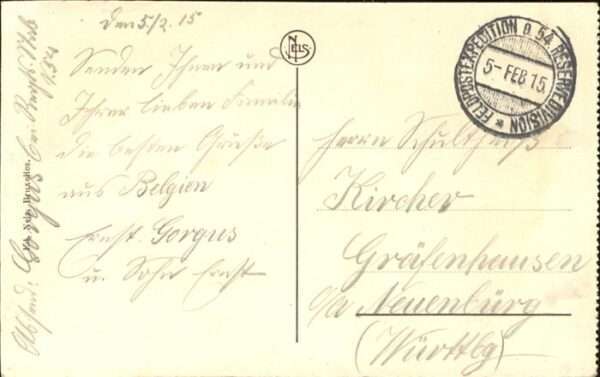 den 5/2. 15
Senden Ihnen und
Ihrer lieben Familie
die besten Grüße
aus Belgien
Ernst Gorgus
u. Sohn Ernst
NELS
FELDPOSTEXPEDITION D 54. RESERVEDIVISION *
5-FEB 15.
Herrn Schultheiß
Kircher
Gräfenhausen
o/a Neuenbürg
(Württbg)
Absend: Gorgus bei
Nels, Bruxelles.